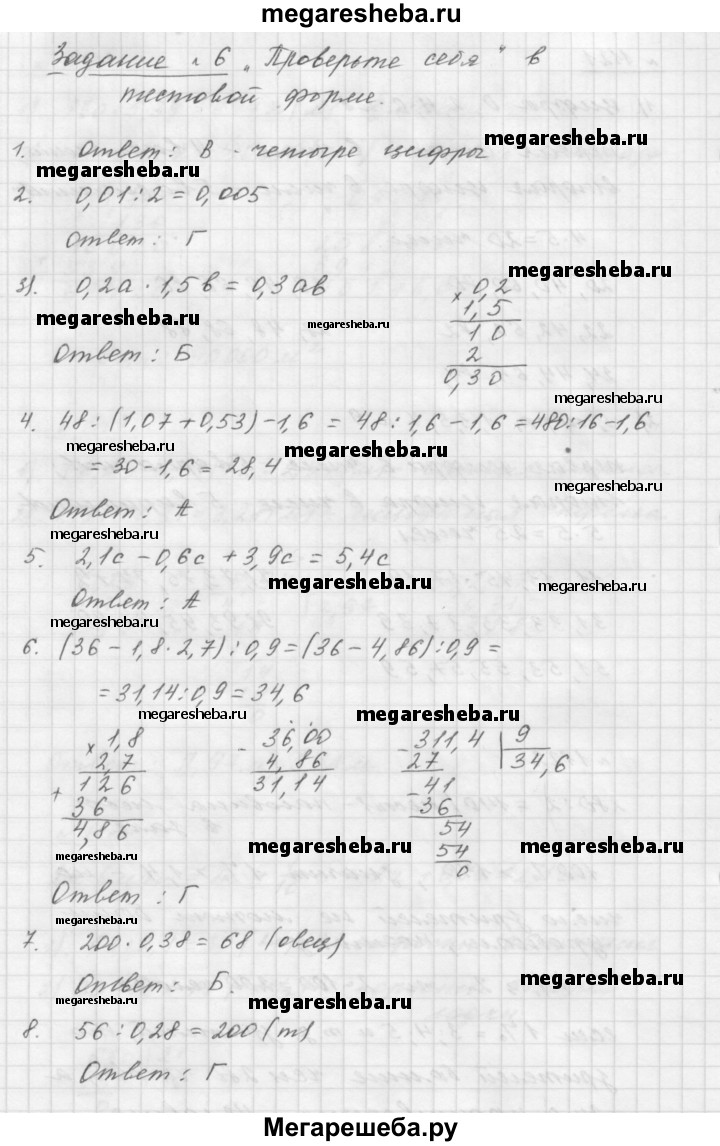 megaresheba.ru
Задание № 6 „Проверьте себя" в
тестовой форме.
1. Ответ: В - четыре цифры
megaresheba.ru
megaresheba.ru
2. 0,01 : 2 = 0,005
Ответ: Г
megaresheba.ru
3). 0,2а · 1,5в = 0,3ав
× 0,2
1,5
1 0
2
0,30
megaresheba.ru
megaresheba.ru
Ответ: Б
megaresheba.ru
4. 48 : (1,07 + 0,53) - 1,6 = 48 : 1,6 - 1,6 = 480:16 - 1,6
megaresheba.ru
megaresheba.ru
= 30 - 1,6 = 28,4
megaresheba.ru
Ответ: А
megaresheba.ru
5. 2,1с - 0,6с + 3,9с = 5,4с
megaresheba.ru
megaresheba.ru
Ответ: А
megaresheba.ru
6. (36 - 1,8 · 2,7) : 0,9 = (36 - 4,86) : 0,9 =
= 31,14 : 0,9 = 34,6
megaresheba.ru
megaresheba.ru
× 1,8
2,7
+ 1 2 6
3 6
4,8 6
- 36,00
4,86
31,14
- 311,4 | 9
27 34,6
- 41
36
54
54
0
megaresheba.ru
megaresheba.ru
megaresheba.ru
Ответ: Г
megaresheba.ru
megaresheba.ru
7. 200 · 0,38 = 68 (овец)
megaresheba.ru
Ответ: Б.
megaresheba.ru
megaresheba.ru
8. 56 : 0,28 = 200 (т)
megaresheba.ru
Ответ: Г
Мегарешеба.ру